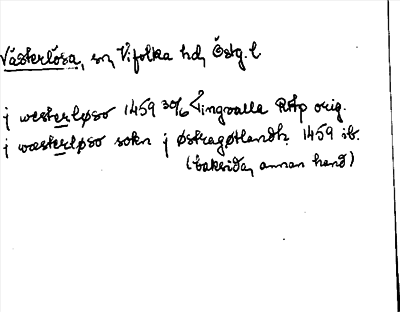 Västerlösa, sn, Vifolka hd, Östg. l
j westerløso 1459 30/6 Lingvalla RAp orig.
j wæsterløso sokn j østragøtlandh. 1459 ib.
(baksida, annan hand)